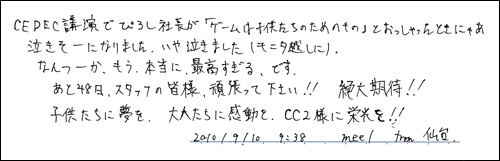 CEDEC講演でぴろし社長が「ゲームは子供たちのためのもの」とおっしゃったときにゃあ
泣きそーになりました。いや泣きました(モニタ越しに)。
なんつーか、もう、本当に、最高すぎる、です。
あと48日、スタッフの皆様、頑張って下さい!! 絶大期待!!
子供たちに夢を、大人たちに感動を、CC2様に栄光を!!
2010/9/10. 9:38 meel from 仙台.